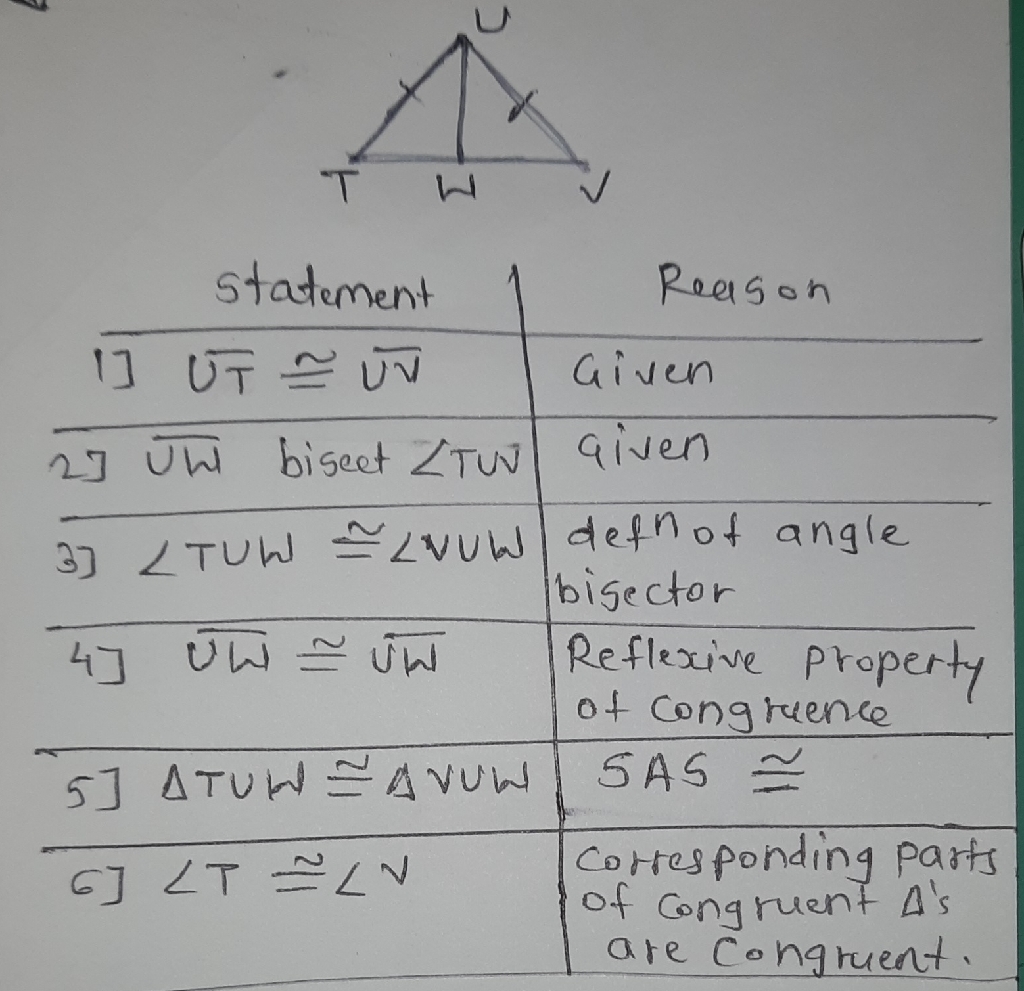 U
T W V
statement Reason
1] UT ≅ UV Given
2] UW bisect ∠TUV Given
3] ∠TUW ≅ ∠VUW defn of angle
bisector
4] UW ≅ UW Reflexive property
of congruence
5] ΔTUW ≅ ΔVUW SAS ≅
6] ∠T ≅ ∠V Corresponding parts
of congruent Δ's
are Congruent.